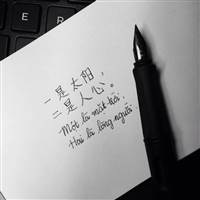 一是太阳，
二是人心。
Một là mặt trời,
Hai là lòng người.